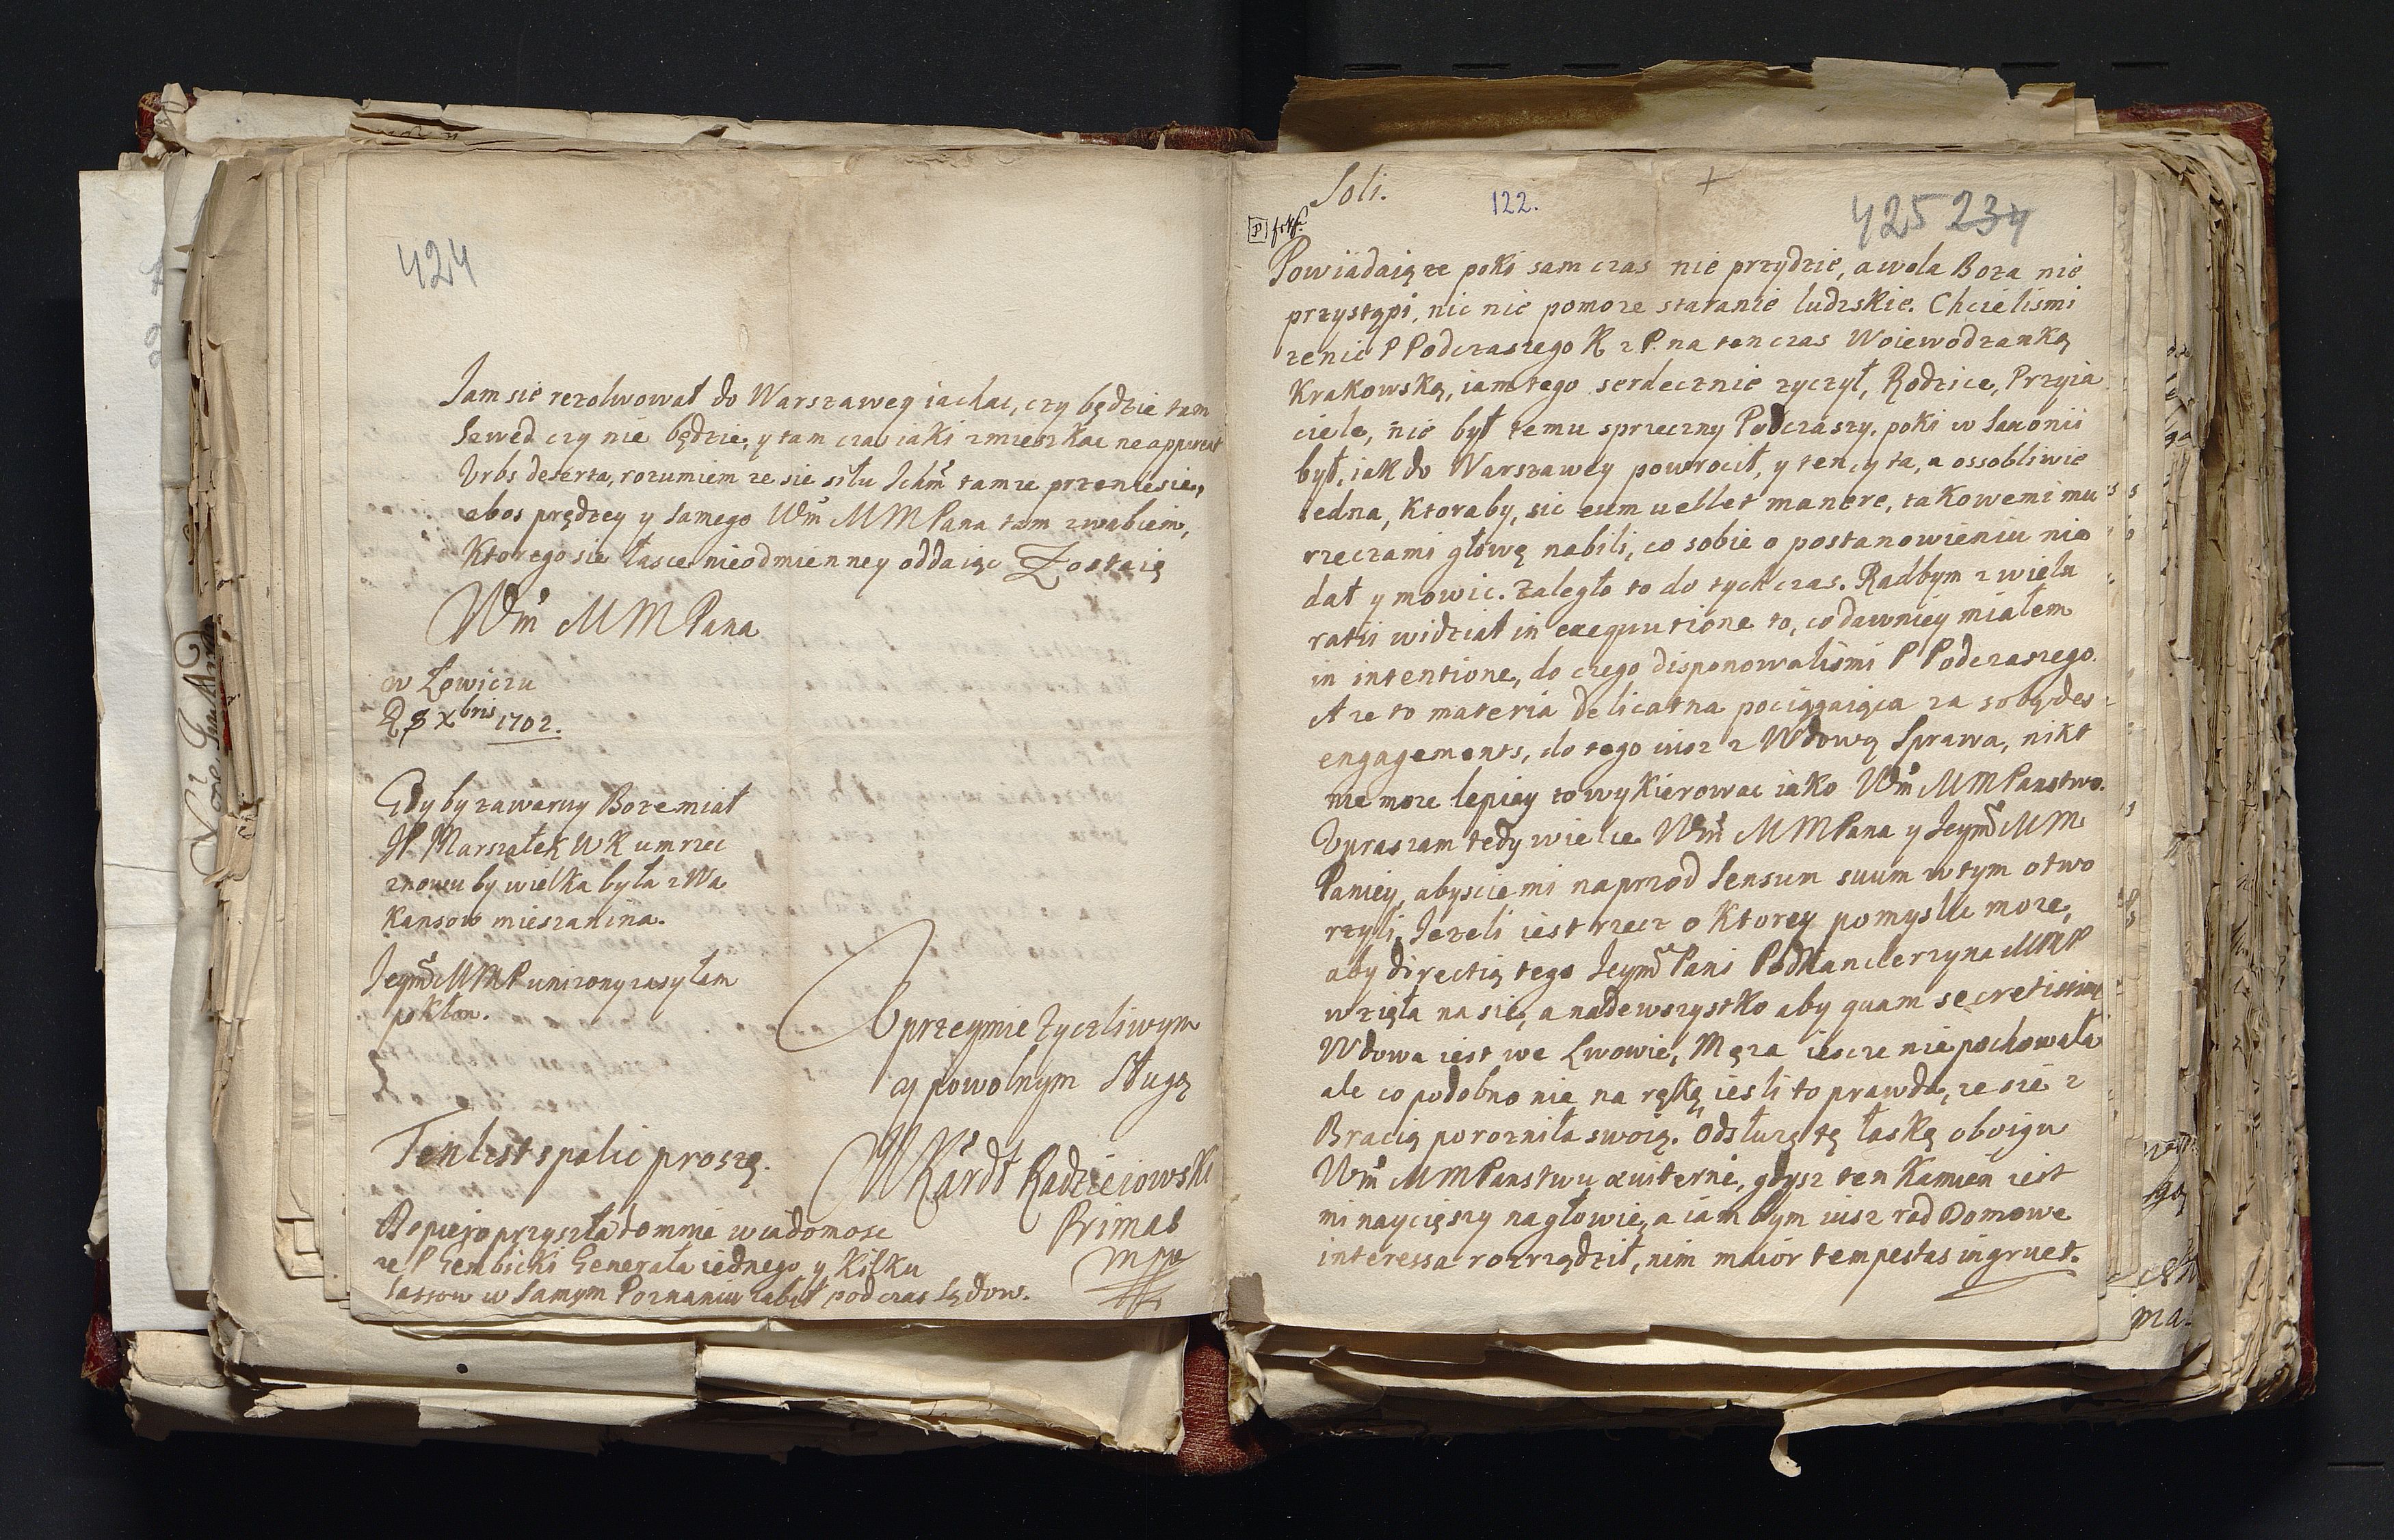 424
Jam sie rezolwował do Warszawey iachac, czy będzie tam
Szwed czy nie będzie, y tam czas iaki zmieszkac ne appareat
Vrbs deserta, rozumiem ze sie siłu Ichm tamze przeniesie,
abos prędzey y samego Wm M M Pana tam zwabiem,
Ktorego sie łasce nieodmienney oddaiąc Zostaię
Wm M M Pana
w Łowiczu
D 8 Xbris 1702.
Gdy by zawaruy Boze miał
JP Marszałek W K umrzec
znowu by wielka była z Wa
kansow mieszanina.
Jeymć M M P unizony zasyłam
pokłon.
Uprzeymie zyczliwym
y powolnym Sługą
Ten list spalic proszę.
M Kardł Radzieiowski
Primas
mpp
Dopiero przyszła do mnie wiadomosc
ze P Gembicki Generała iednego y kilku
Sassow w samym Poznaniu zabił podczas Sądow.
Soli.
122.
425 234
P
Powiadaią ze poki sam czas nie przydzie, a wola Boza nie
przystąpi, nic nie pomoze staranie ludzskie. Chcielismi
zenic P Podczaszego K z P. na ten czas Woiewodzanką
Krakowską, iam tego serdecznie zyczył, Rodzice, Przyia
ciele, nie był temu sprzeczny Podczaszy, poki w Saxonii
był, iak do Warszawey powrocił, y ten, y ta, a ossobliwie
iedna, Ktoraby, sic eum uellet manere, takowemi mu
rzeczami głowę nabili, co sobie o postanowieniu nie
dał y mowic. Zaległo to do tych czas. Radbym z wielu
ratii widział in exequutione to, co dawniey miałem
in intentione, do czego disponowalismi P Podczaszego.
A ze to materia delicatna pociągaiąca za sobą des-
engagements, do tego iusz z Wdową Sprawa, nikt
nie moze lepiey to wykierowac iako Wm M M Panstwo.
Upraszam tedy wielce Wm M M Pana y Jeymć M M
Paniey, abyscie mi naprzod sensum suum w tym otwo
rzyli, Jezeli iest rzecz o Ktorey pomyslic moze,
aby directią tego Jeymć Pani Podkanclerzyna M M P
wzięła na sie, a nadewszystko aby quam secretissime
Wdowa iest we Lwowie, Męza iescze nie pochowała
ale co podobno nie na rękę iesli to prawda, ze sie z
Bracią porozniła swoią. Odsłuzę tę łaskę oboigu
Wm M M Panstwu æuiterne, gdysz ten Kamien iest
mi naycięszy na głowie, a iam bym iusz rad Domowe
interessa rozrządził, nim maior tempestas ingruet.